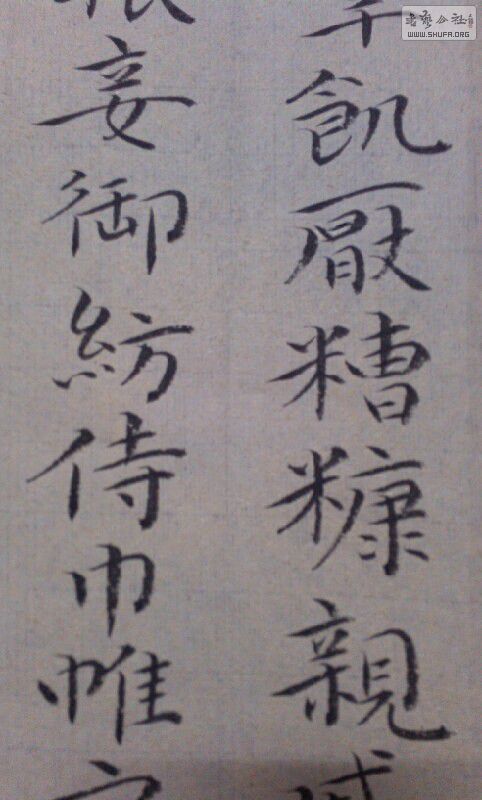 飢厭糟糠親戚
妾御紡侍巾帷
書藝公社
WWW.SHUFA.ORG